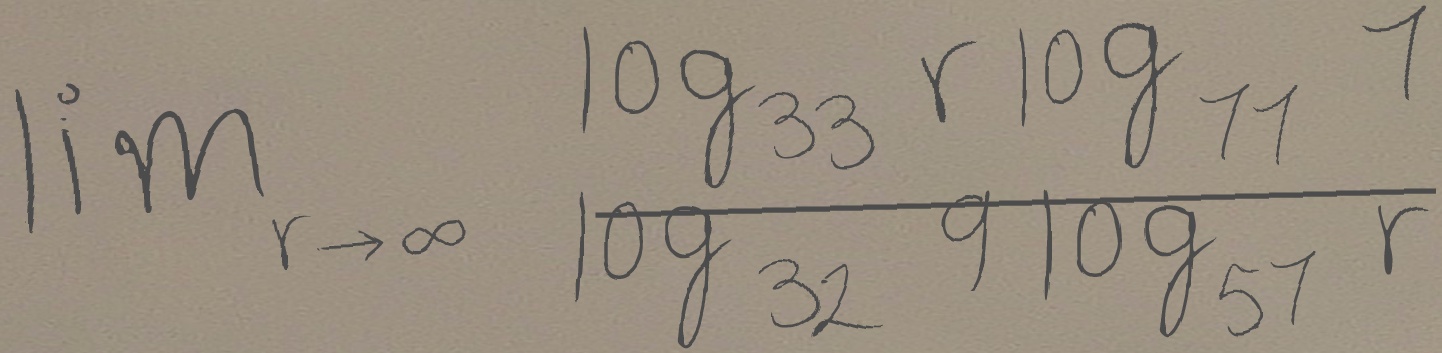 \lim_{r \to \infty} \frac{\log_{33} r \log_{11} 1}{\log_{32} 9 \log_{51} r}